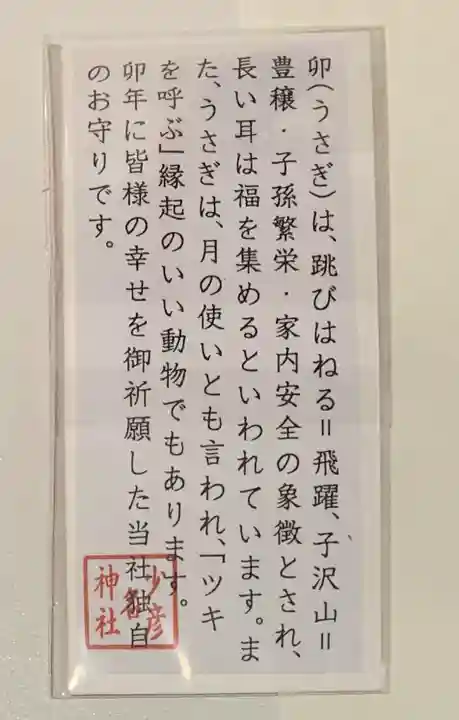 卯(うさぎ)は、跳びはねる=飛躍、子沢山=
豊穣・子孫繁栄・家内安全の象徴とされ、
長い耳は福を集めるといわれています。ま
た、うさぎは、月の使いとも言われ、「ツキ
を呼ぶ」縁起のいい動物でもあります。
卯年に皆様の幸せを御祈願した当社独自
のお守りです。
少彦
名
神社